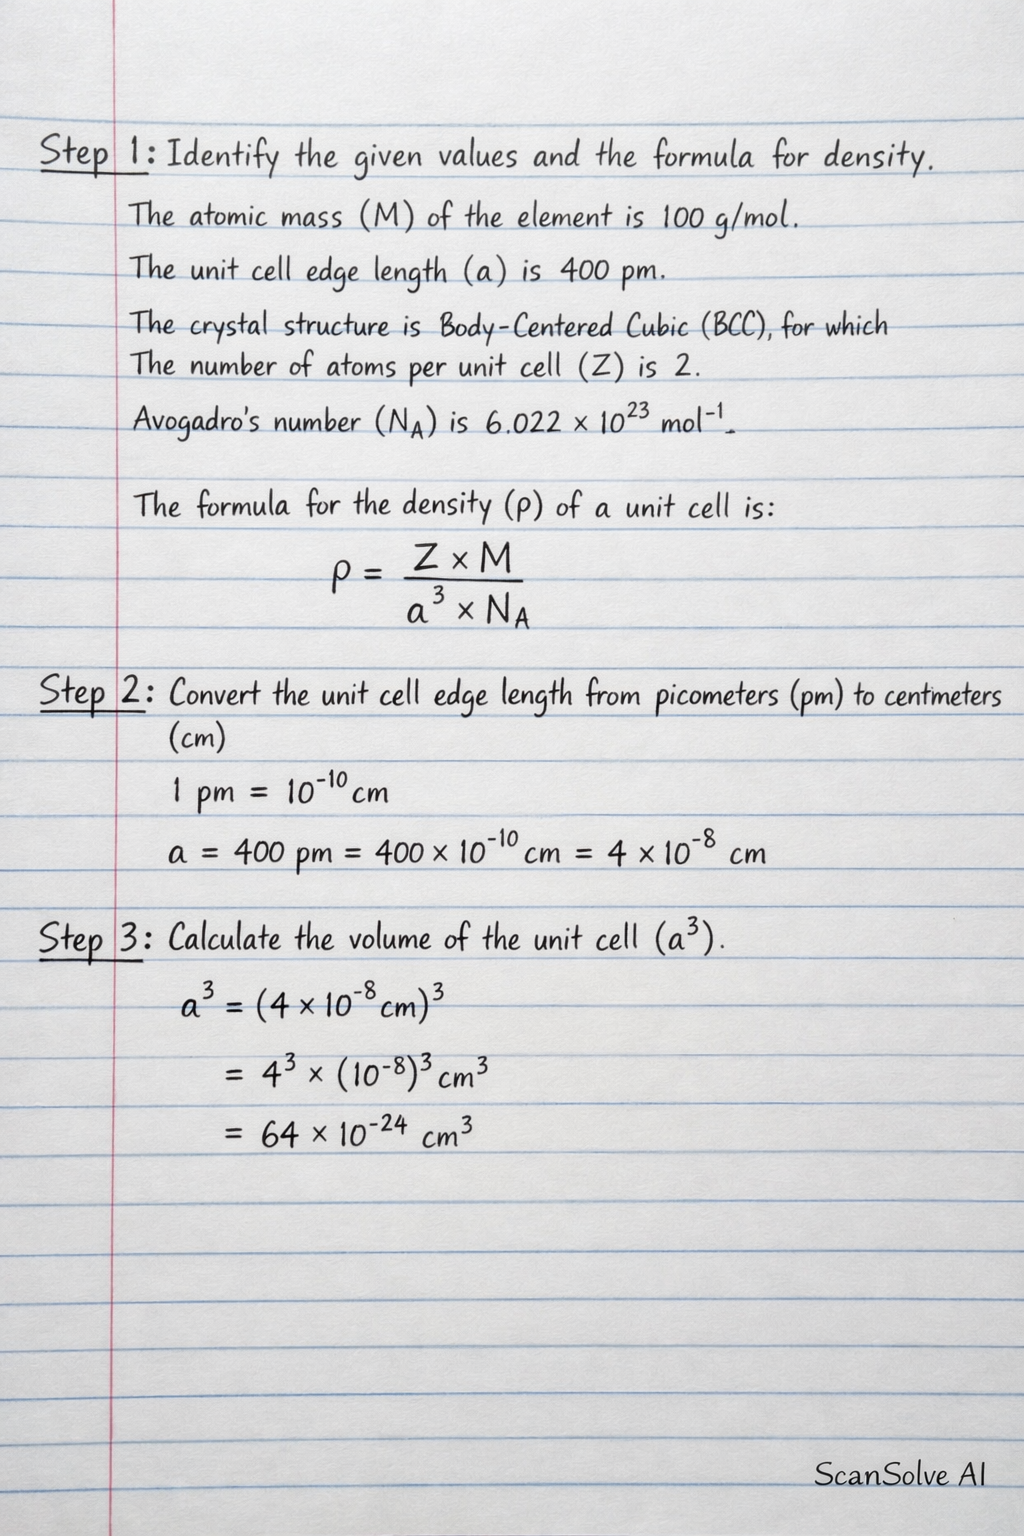 Step 1: Identify the given values and the formula for density.
The atomic mass (M) of the element is 100 g/mol.
The unit cell edge length (a) is 400 pm.
The crystal structure is Body-Centered Cubic (BCC), for which
The number of atoms per unit cell (Z) is 2.
Avogadro's number (N_A) is 6.022 × 10²³ mol⁻¹.
The formula for the density (ρ) of a unit cell is:
ρ = (Z × M) / (a³ × N_A)
Step 2: Convert the unit cell edge length from picometers (pm) to centmeters
(cm)
1 pm = 10⁻¹⁰ cm
a = 400 pm = 400 × 10⁻¹⁰ cm = 4 × 10⁻⁸ cm
Step 3: Calculate the volume of the unit cell (a³).
a³ = (4 × 10⁻⁸ cm)³
= 4³ × (10⁻⁸)³ cm³
= 64 × 10⁻²⁴ cm³
ScanSolve AI